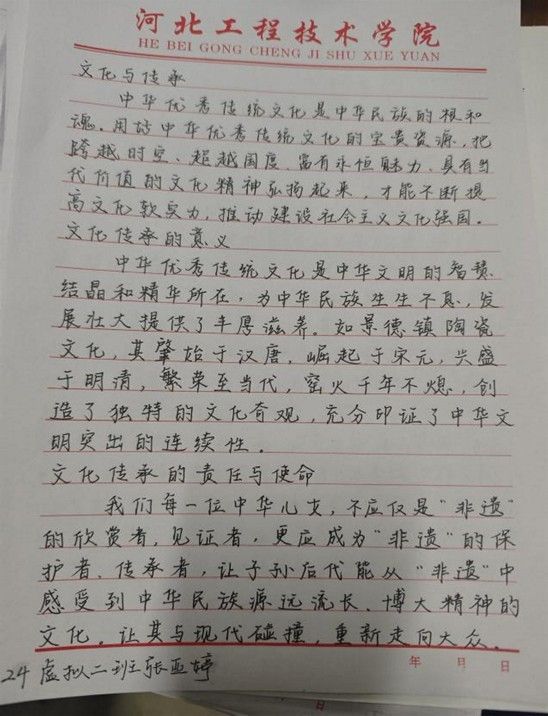 河北工程技术学院
HE BEI GONG CHENG JI SHU XUE YUAN
文化与传承
中华优秀传统文化是中华民族的根和
魂。用好中华优秀传统文化的宝贵资源,把
跨越时空、超越国度、富有永恒魅力、具有当
代价值的文化精神弘扬起来,才能不断提
高文化软实力,推动建设社会主义文化强国。
文化传承的意义
中华优秀传统文化是中华文明的智慧
结晶和精华所在,为中华民族生生不息,发
展壮大提供了丰厚滋养。如景德镇陶瓷
文化,其肇始于汉唐,崛起于宋元,兴盛
于明清,繁荣至当代,窑火千年不熄,创
造了独特的文化奇观,充分印证了中华文
明突出的连续性。
文化传承的责任与使命
我们每一位中华儿女,不应仅是“非遗”
的欣赏者,见证者,更应成为“非遗”的保
护者、传承者,让子孙后代能从“非遗”中
感受到中华民族源远流长、博大精神的
文化。让其与现代碰撞,重新走向大众。
年 月 日
24虚拟二班张亚婷